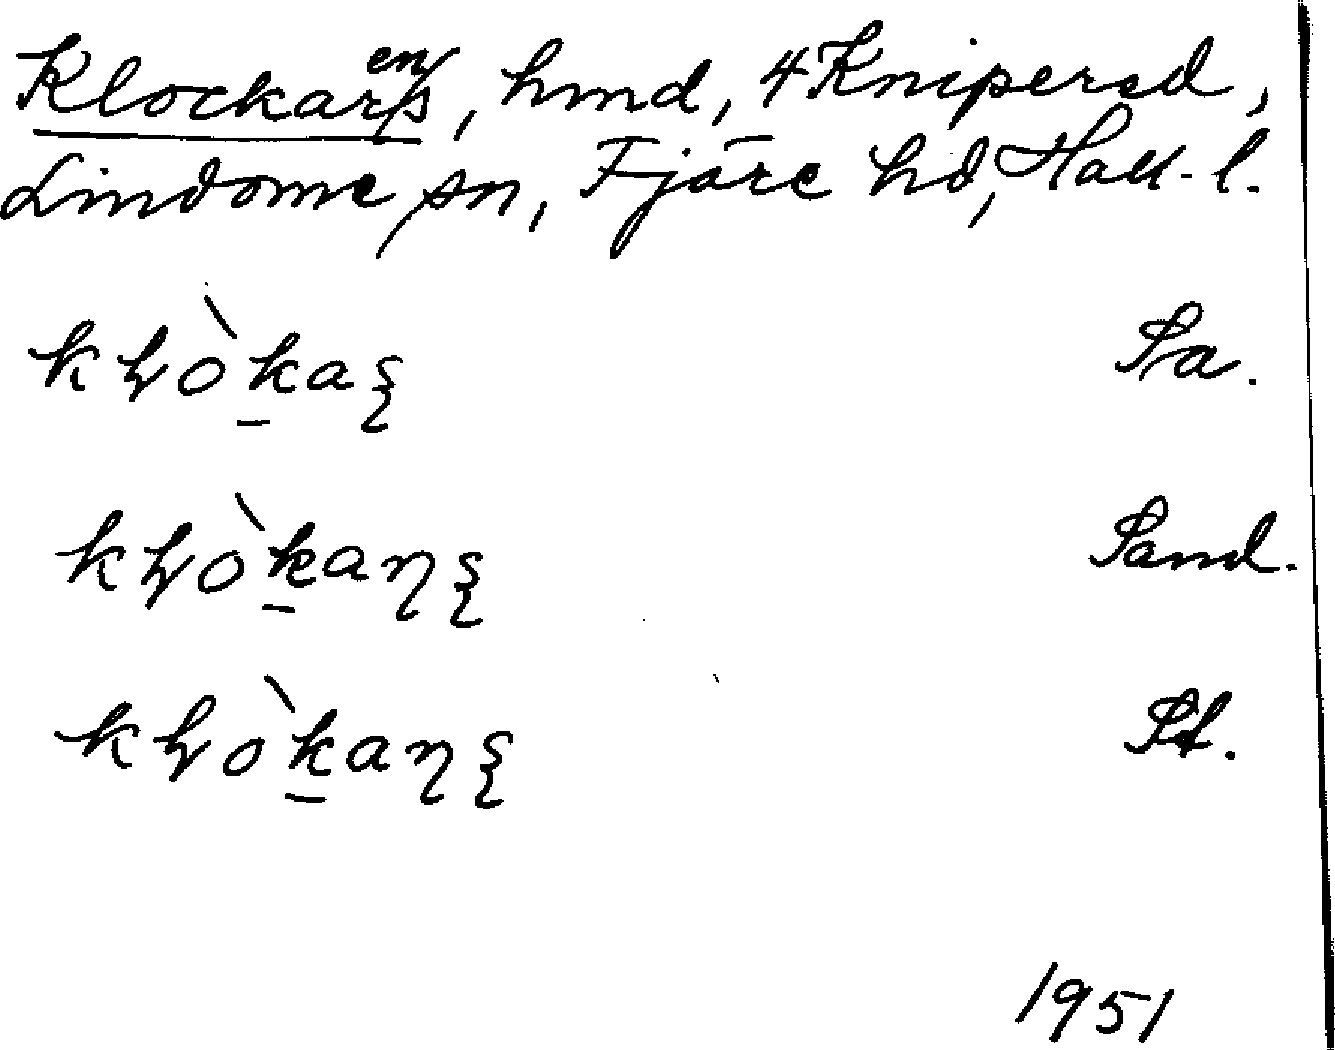 Klockarens, hmd, 4 Knipered,
Lindome sn, Fjäre hd, Hall. l.
kⱡò̠kaʂ Sa.
kⱡòkaɳʂ Sand.
kⱡòkaɳʂ St.
1951